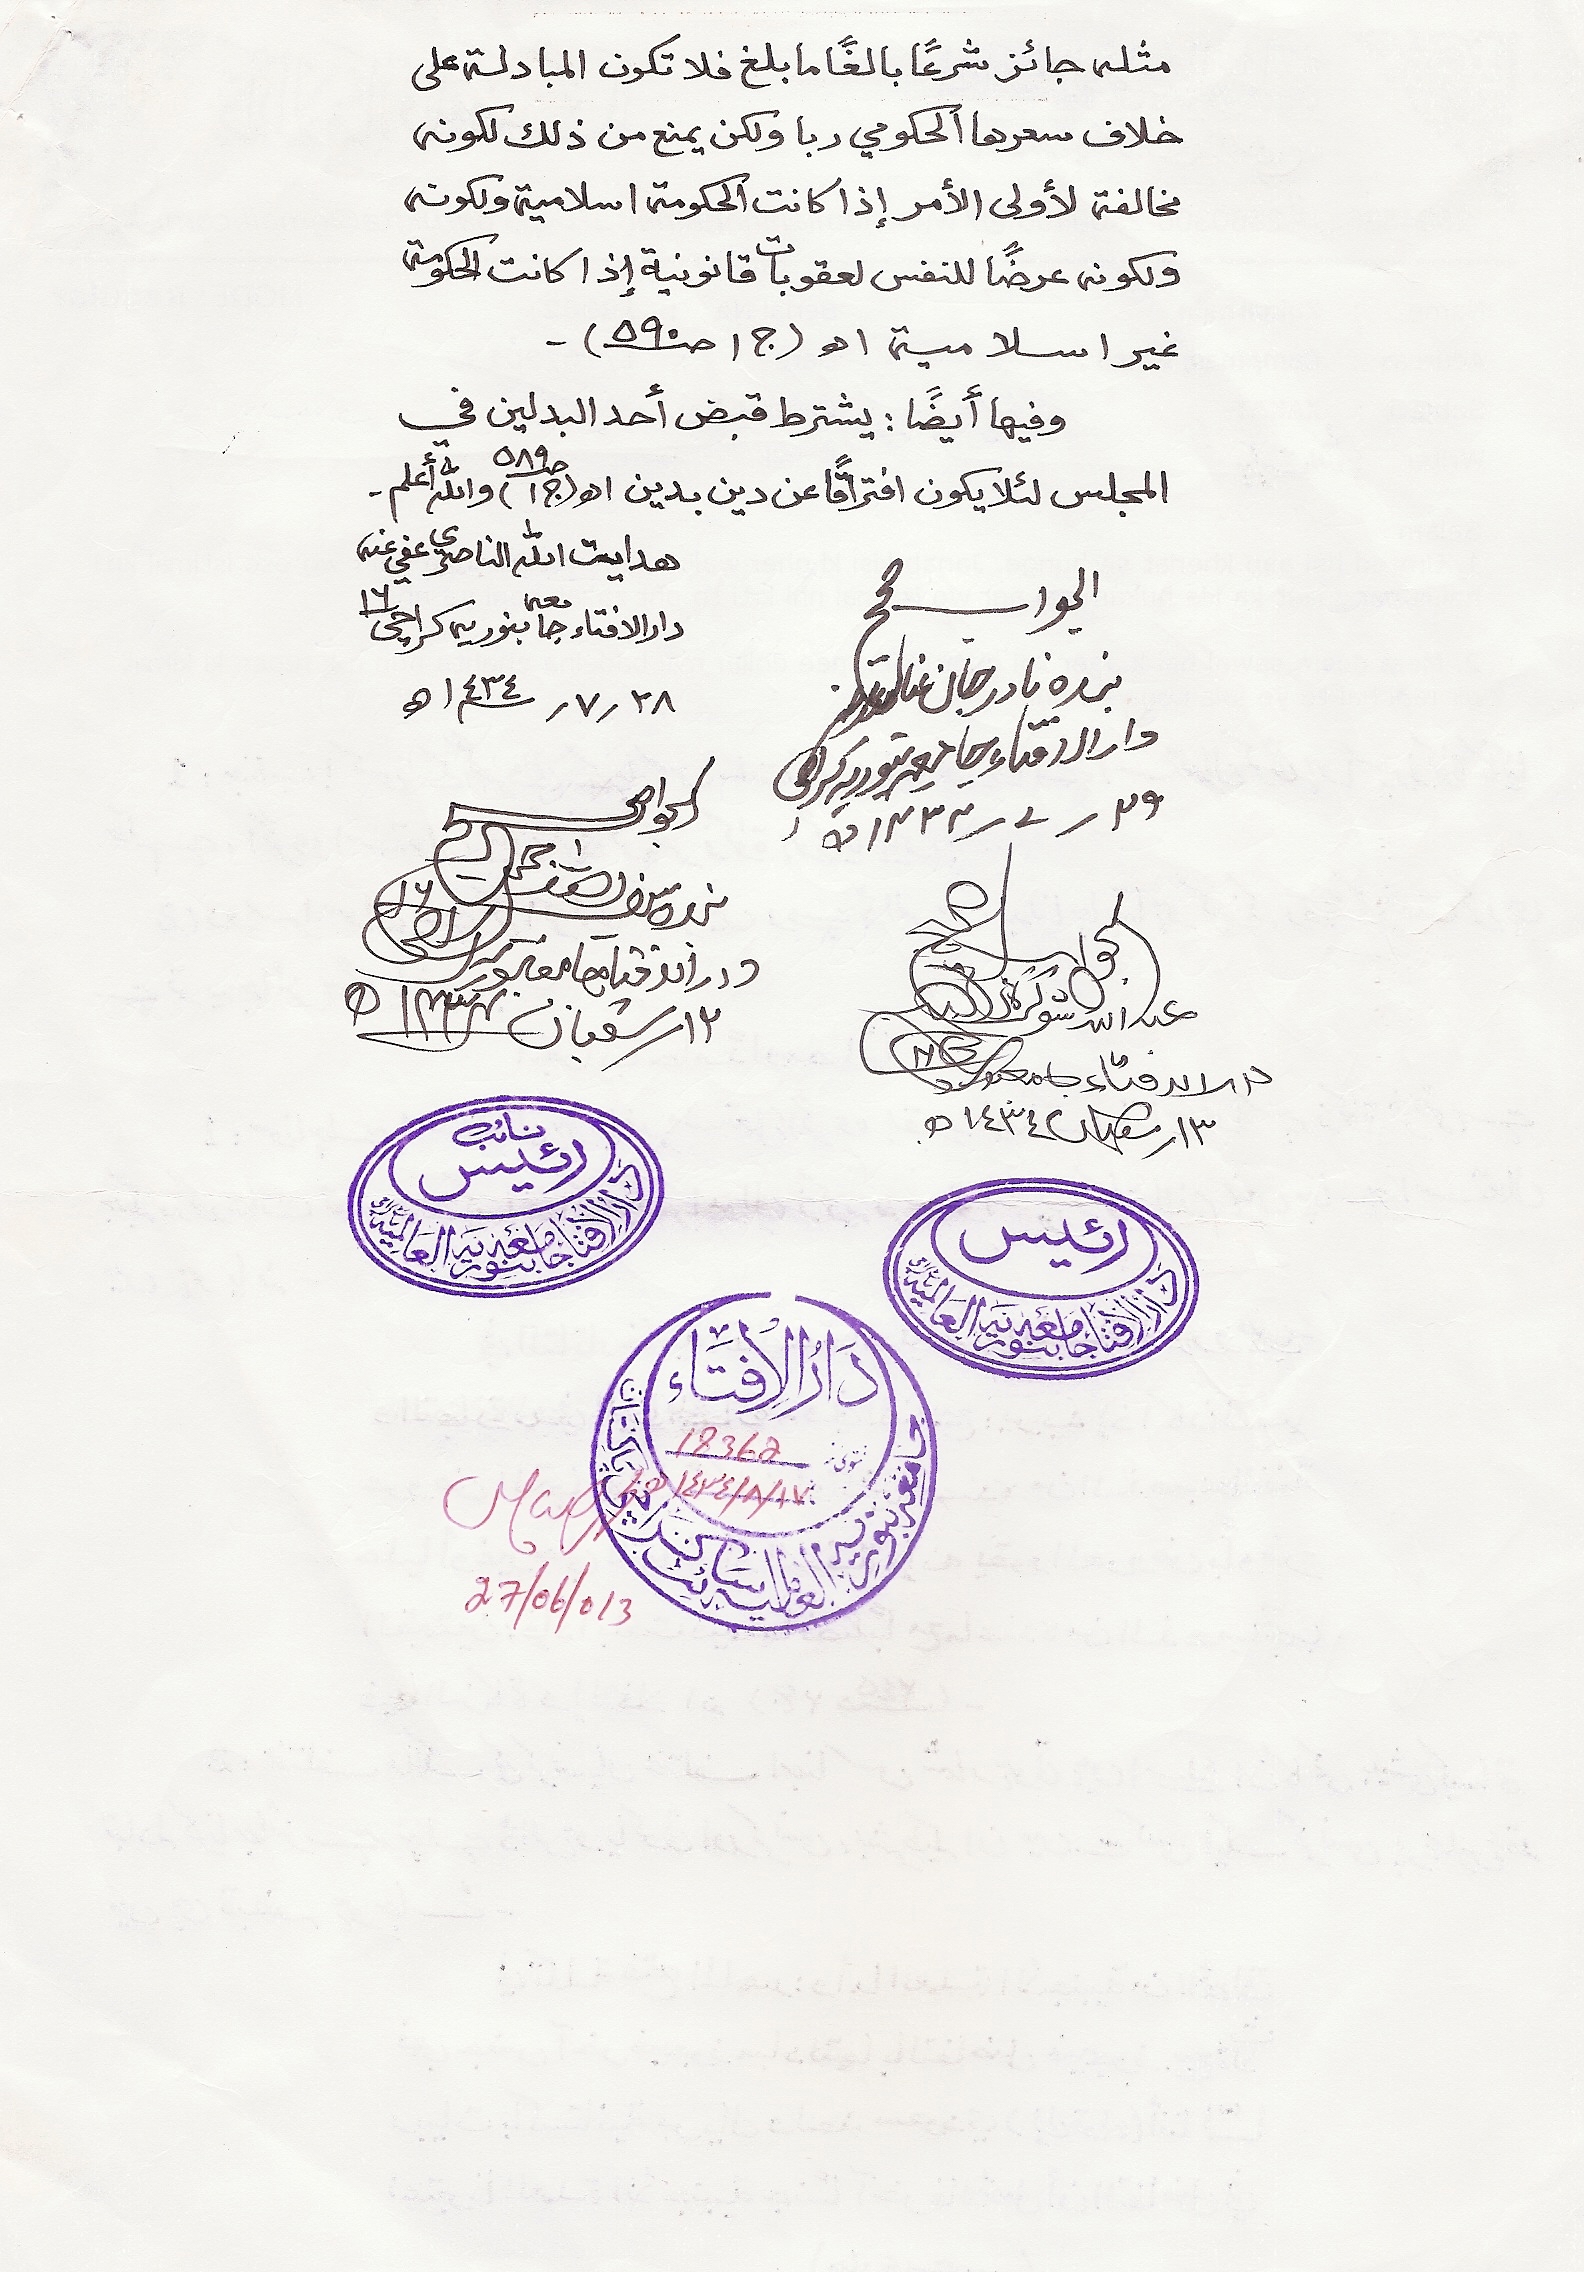 مثله جائز شرعًا بالغًا ما بلغ فلا تكون المبادلة على
خلاف سعرها الحكومي ربا ولكن يمنع من ذلك لكونه
مخالفة لأولى الأمر إذا كانت الحكومة اسلامية ولكونه
ولكونه عرضًا للنفس لعقوبات قانونية إذا كانت الحكومة
غير اسلامية اھ (ج ١ صـ ٥٩٠) -
وفيها أيضًا : يشترط قبض أحد البدلين في
المجلس لئلا يكون افتراقًا عن دين بدين اھ (ج ١ صـ ٥٨٩) والله أعلم -
هدايت الله الناصري عفي عنه
دار الافتاء جامعه بنوريه كراچی ١٦
٢٨ / ٧ / ١٤٣٤ھ
الجواب صحیح
بنده نادر جان
دار الافتاء جامعه بنوريه کراچی
٢٩ / ٧ / ١٤٣٤ھ
الجواب صحیح
بنده
دار الافتاء جامعه بنوریه
١٢ / شعبان ١٤٣٤ھ
الجواب صحیح
عبد الله شوکت
دار الافتاء جامعه بنوریه
١٣ / شعبان ١٤٣٤ھ
نائب
رئیس
دار الافتاء جامعه بنوریه العالمیة
رئیس
دار الافتاء جامعه بنوریه العالمیة
دَارُ الْاِفتَاء
فتوی نمبر 12362
١٤٣٤/٨/١٧ھ
جامعه بنوریه العالمیه سائٹ کراچی پاکستان
27/06/013